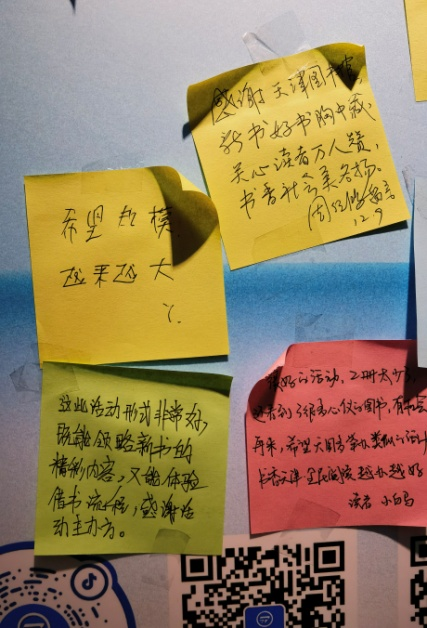 感谢天津图书馆,
新书好书胸中藏,
关心读者万人赞,
书香社会美名扬。
12.9
希望规模
越来越大
这些活动形式非常好,
既能领略新书的
精彩内容,又能体验
借书流程,感谢活
动主办方。
很好的活动,
还看到了很多心仪的图书,有机会
再来,希望
越办越好
读者 小白马